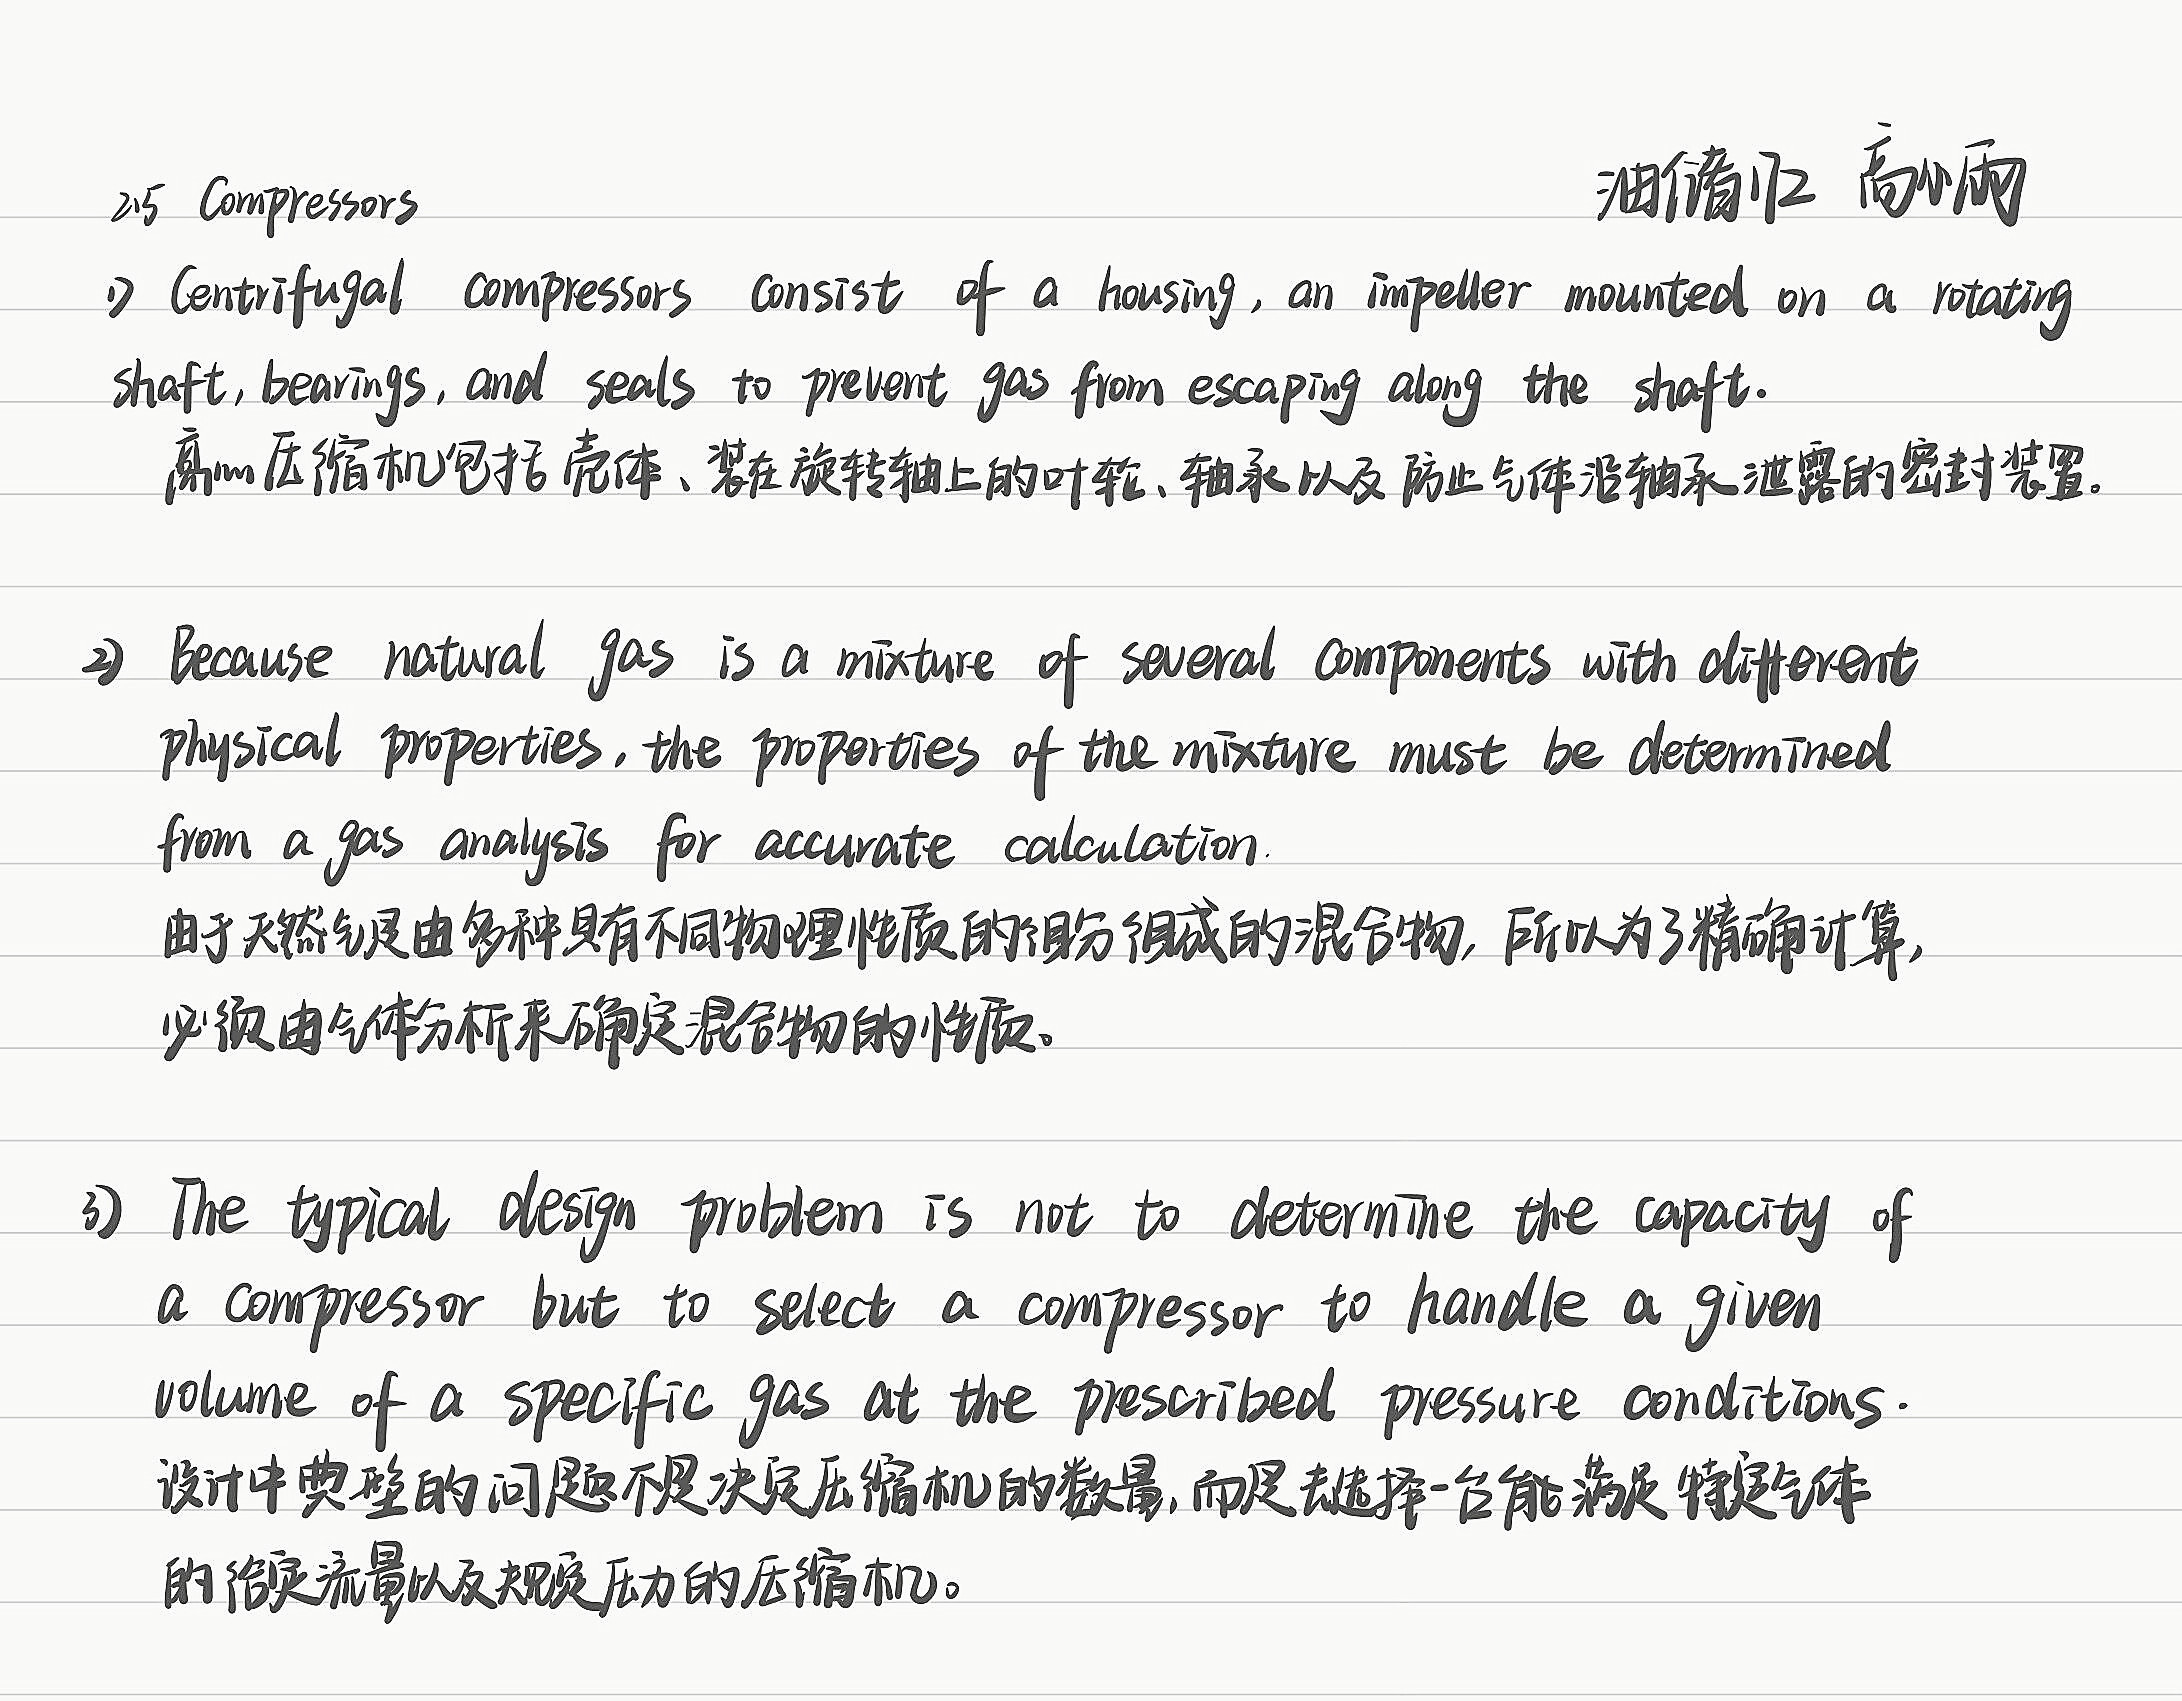 2.5 Compressors 油储卓 高小雨
1) Centrifugal compressors consist of a housing, an impeller mounted on a rotating
shaft, bearings, and seals to prevent gas from escaping along the shaft.
离心压缩机包括壳体、装在旋转轴上的叶轮、轴承以及防止气体沿轴承泄露的密封装置。
2) Because natural gas is a mixture of several components with different
physical properties, the properties of the mixture must be determined
from a gas analysis for accurate calculation.
由于天然气是由多种具有不同物理性质的组分组成的混合物, 所以为了精确计算,
必须由气体分析来确定混合物的性质。
3) The typical design problem is not to determine the capacity of
a compressor but to select a compressor to handle a given
volume of a specific gas at the prescribed pressure conditions.
设计中典型的问题不是决定压缩机的数量, 而是去选择一台能满足特定气体
的给定流量以及规定压力的压缩机。